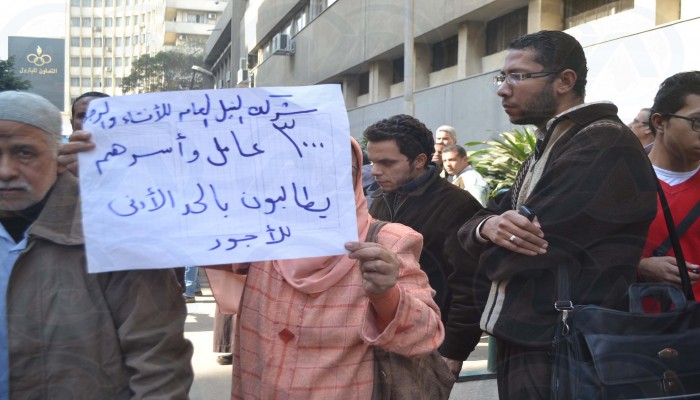 التعاون للبترول
شركة النيل العامة للإنشاء والرصف
٣٠٠٠ عامل وأسرهم
يطالبون بالحد الأدنى
للأجور